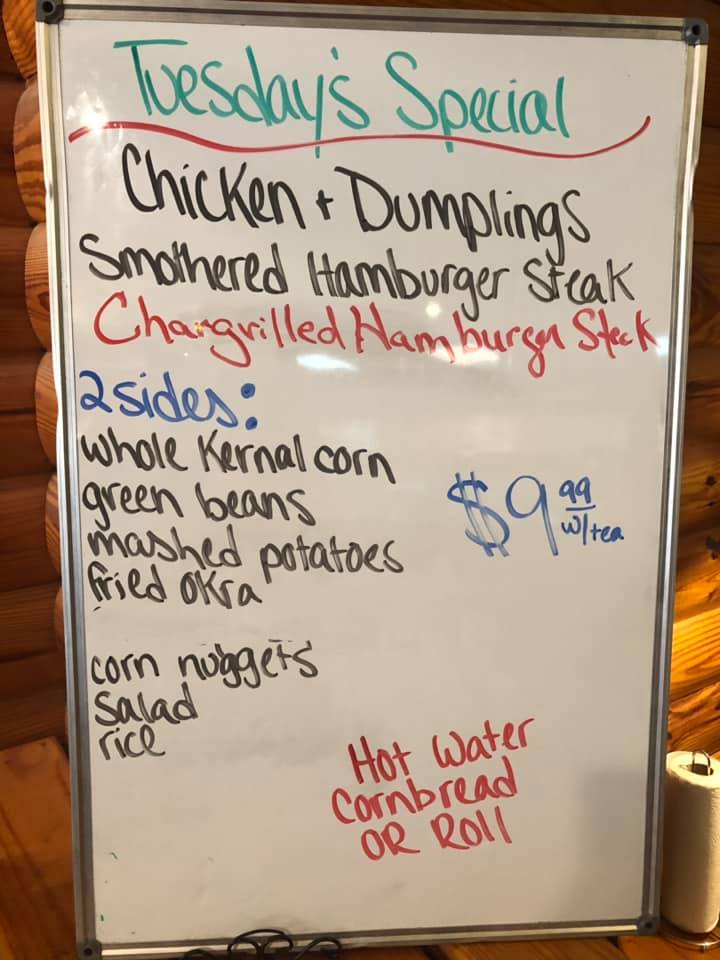 Tuesday's Special
Chicken + Dumplings
Smothered Hamburger Steak
Chargrilled Hamburger Steak
2 sides:
whole Kernal corn
green beans
mashed potatoes
fried okra
$9 99
w/tea
corn nuggets
Salad
rice
Hot Water
Cornbread
OR Roll